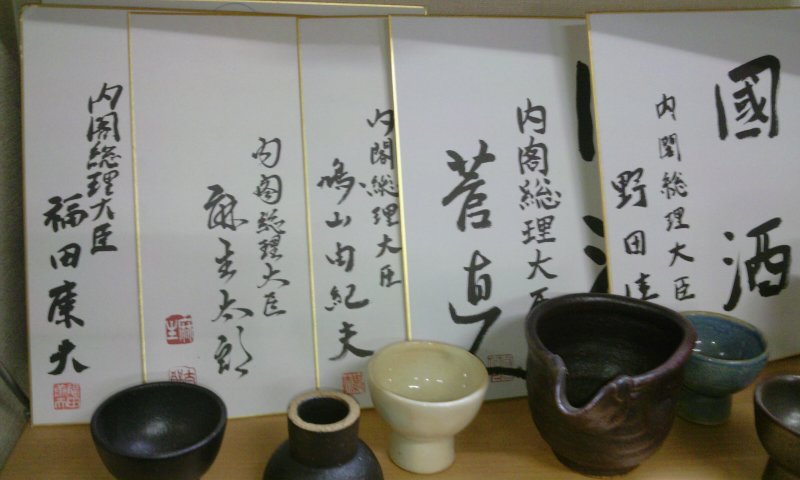 國酒
内閣総理大臣
野田佳
内閣総理大臣
菅直
内閣総理大臣
鳩山由紀夫
内閣総理大臣
麻生太郎
内閣総理大臣
福田康夫